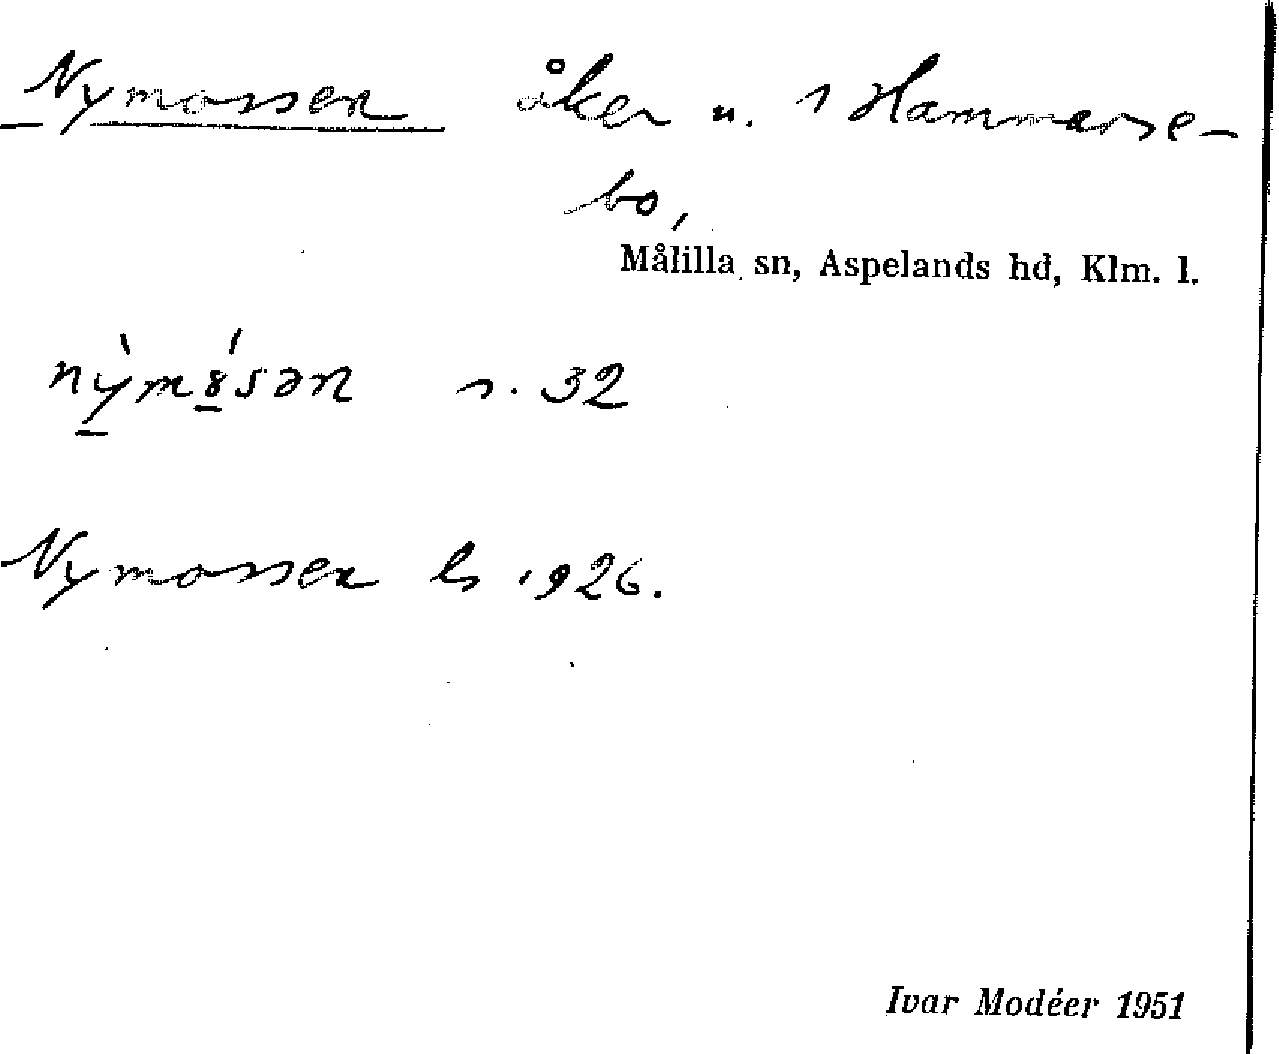 Nymossen åker u. 1 Hammarse-
bo,
Målilla sn, Aspelands hd, Klm. l.
s. 32
Nymossen ls 1926.
Ivar Modéer 1951